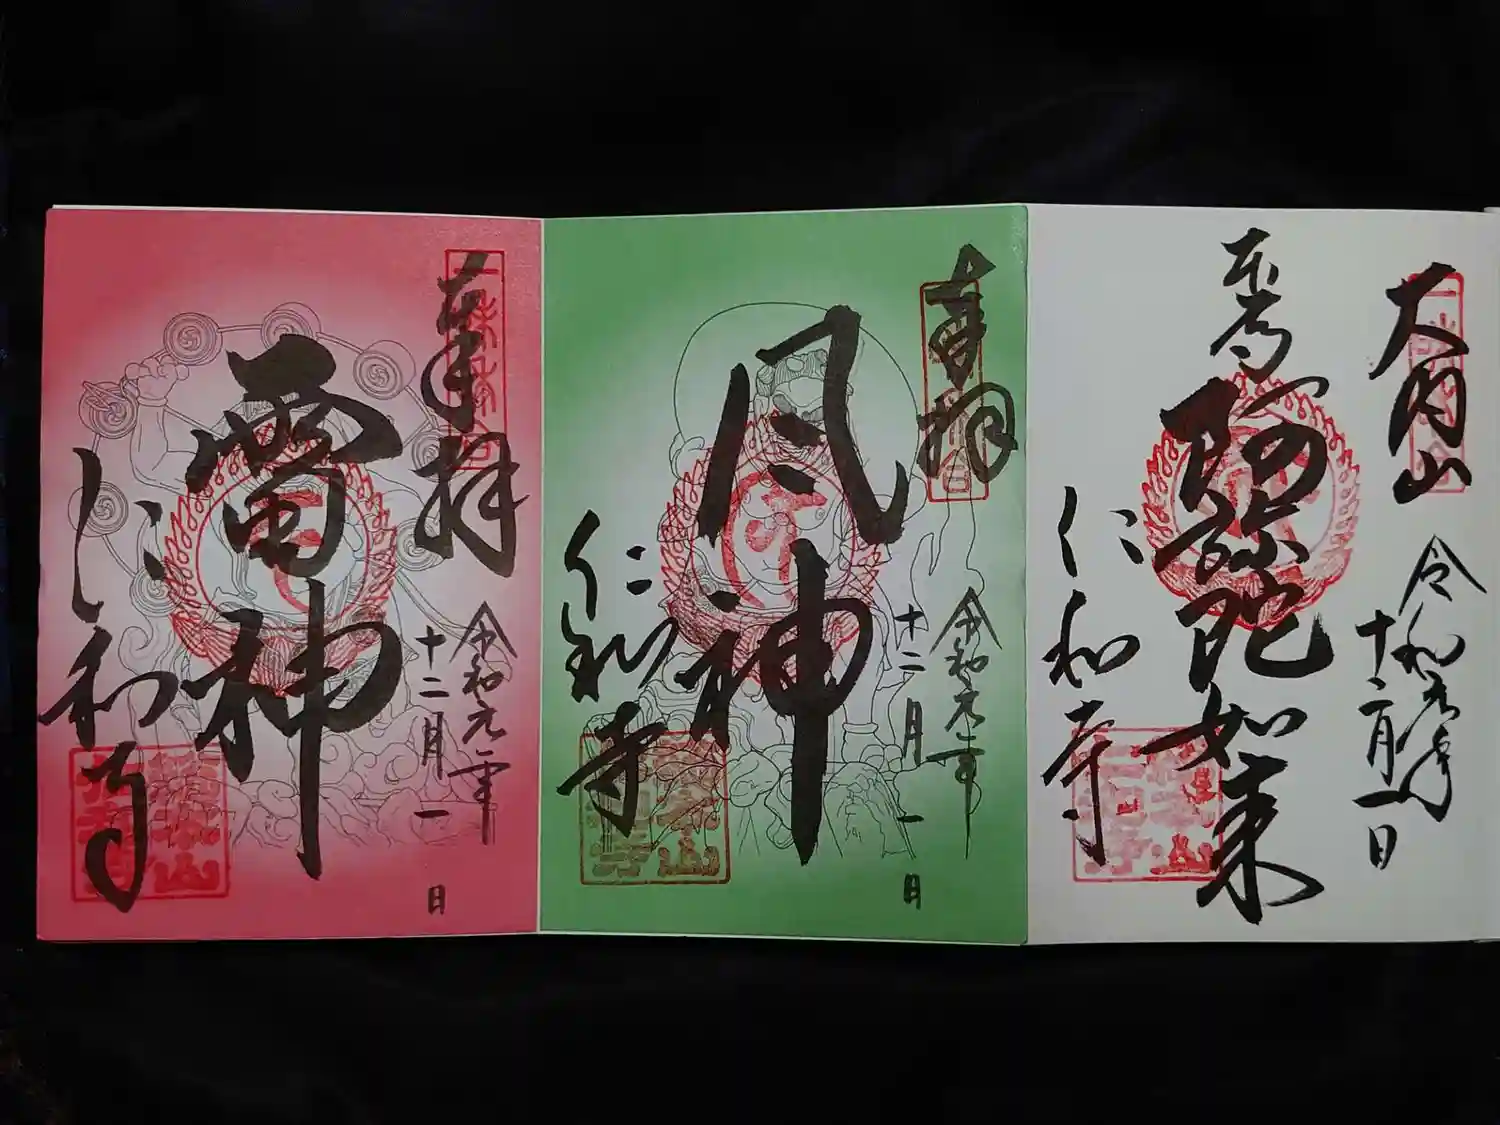 大内山
令和元年
十二月一日
本尊
阿弥陀如来
仁和寺
奉拝
令和元年
十二月一日
風神
仁和寺
奉拝
令和元年
十二月一日
雷神
仁和寺